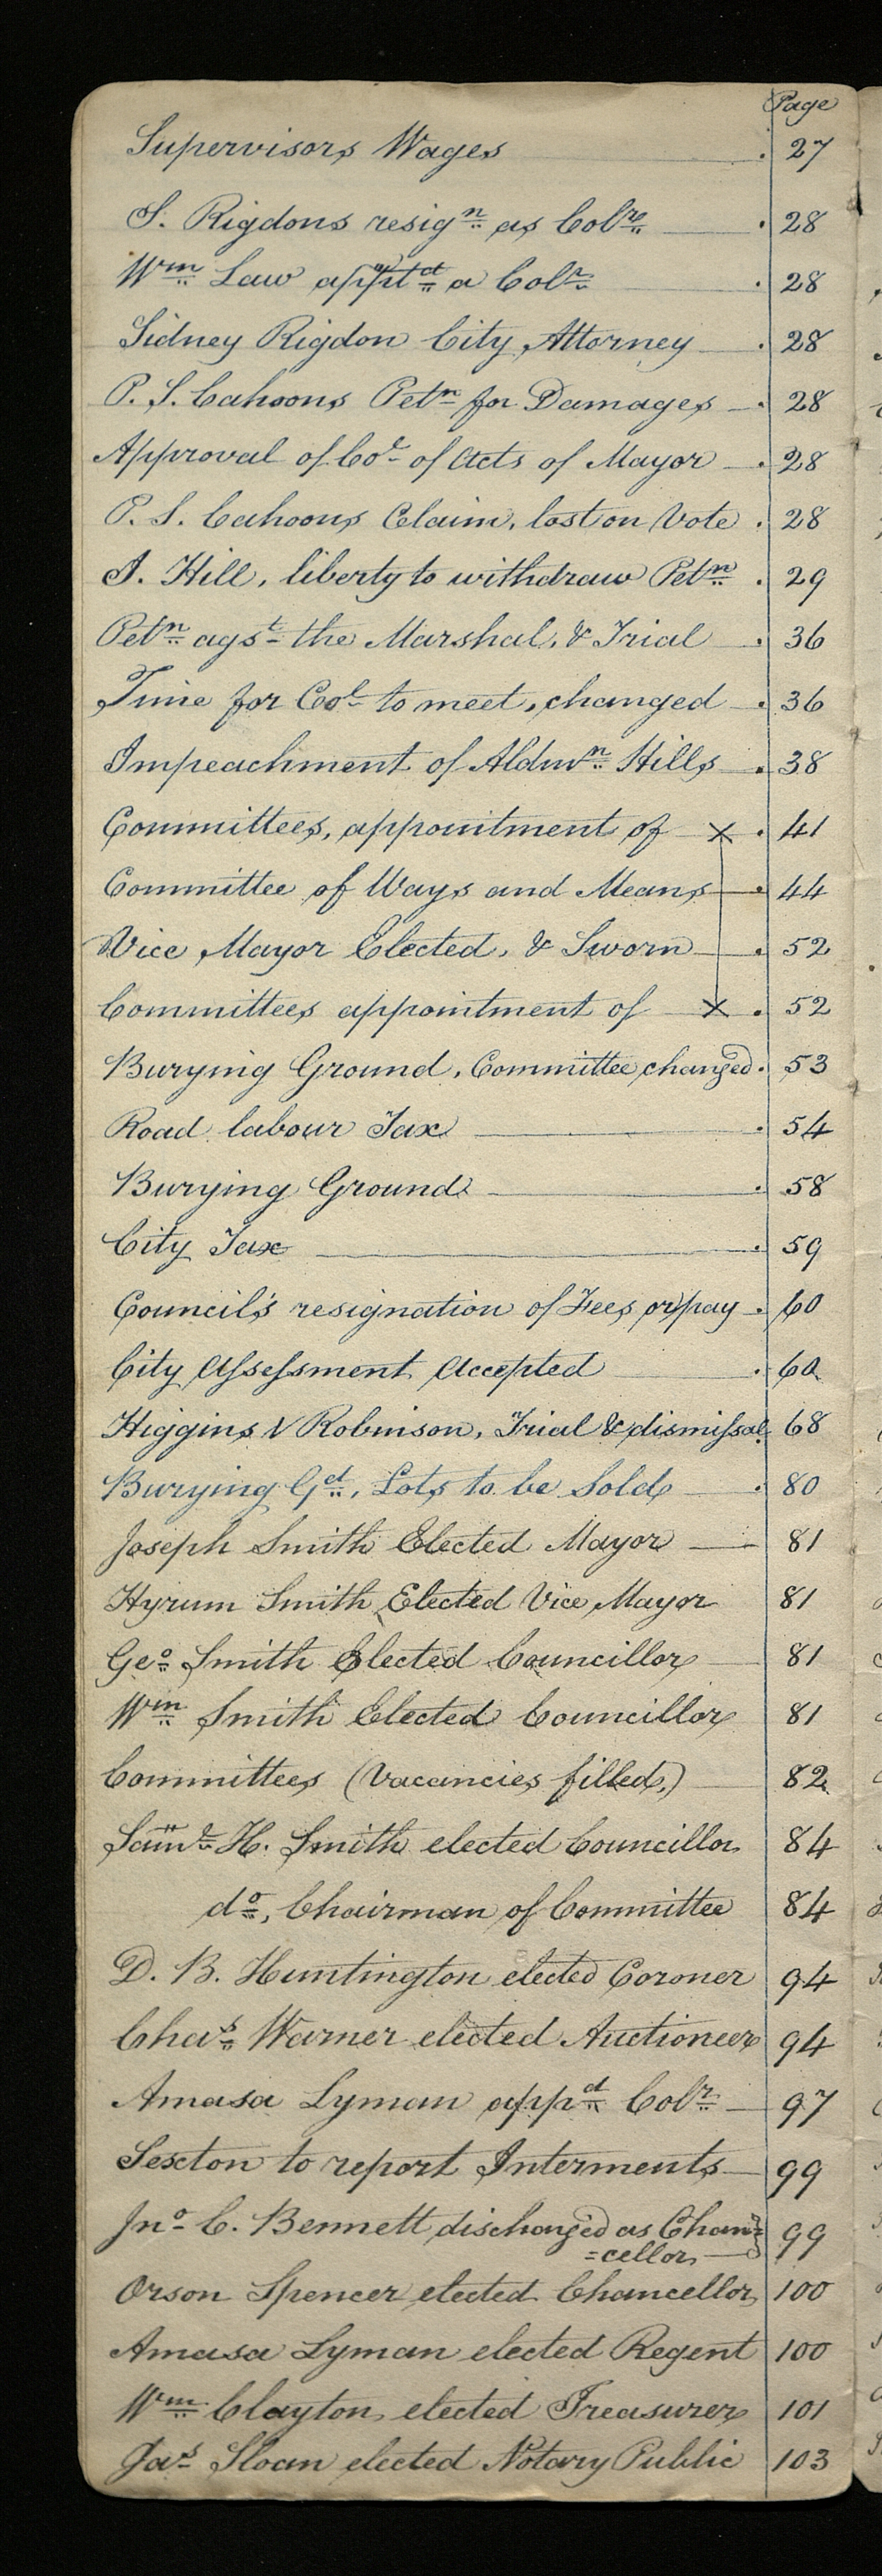 Page
Supervisors Wages 27
S. Rigdons resign as Colr 28
Wm Law apptd a Colr 28
Sidney Rigdon City Attorney 28
P. S. Cahoons Petn for Damages 28
Approval of Col of Acts of Mayor 28
P. S. Cahoons Claim, lost on Vote 28
I. Hill, liberty to withdraw Petn 29
Petn agst the Marshal, & Trial 36
Time for Col to meet, changed 36
Impeachment of Aldmn Hills 38
Committees, appointment of X 41
Committee of Ways and Means 44
Vice Mayor Elected, & Sworn 52
Committees appointment of X 52
Burying Ground, Committee changed 53
Road labour Tax 54
Burying Ground 58
City Tax 59
Council's resignation of Fees or pay 60
City Assessment Accepted 60
Higgins V Robinson, Trial & dismissal 68
Burying Gd, Lots to be Sold 80
Joseph Smith Elected Mayor 81
Hyrum Smith Elected Vice Mayor 81
Geo Smith Elected Councillor 81
Wm Smith Elected Councillor 81
Committees (Vacancies filled,) 82
Saml H. Smith elected Councillor 84
do, Chairman of Committee 84
D. B. Huntington elected Coroner 94
Chas Warner elected Auctioneer 94
Amasa Lyman appd Colr 97
Sexton to report Interments 99
Jno C. Bennett discharged as Chan= 99
=cellor
Orson Spencer elected Chancellor 100
Amasa Lyman elected Regent 100
Wm Clayton elected Treasurer 101
Jas Sloan elected Notary Public 103